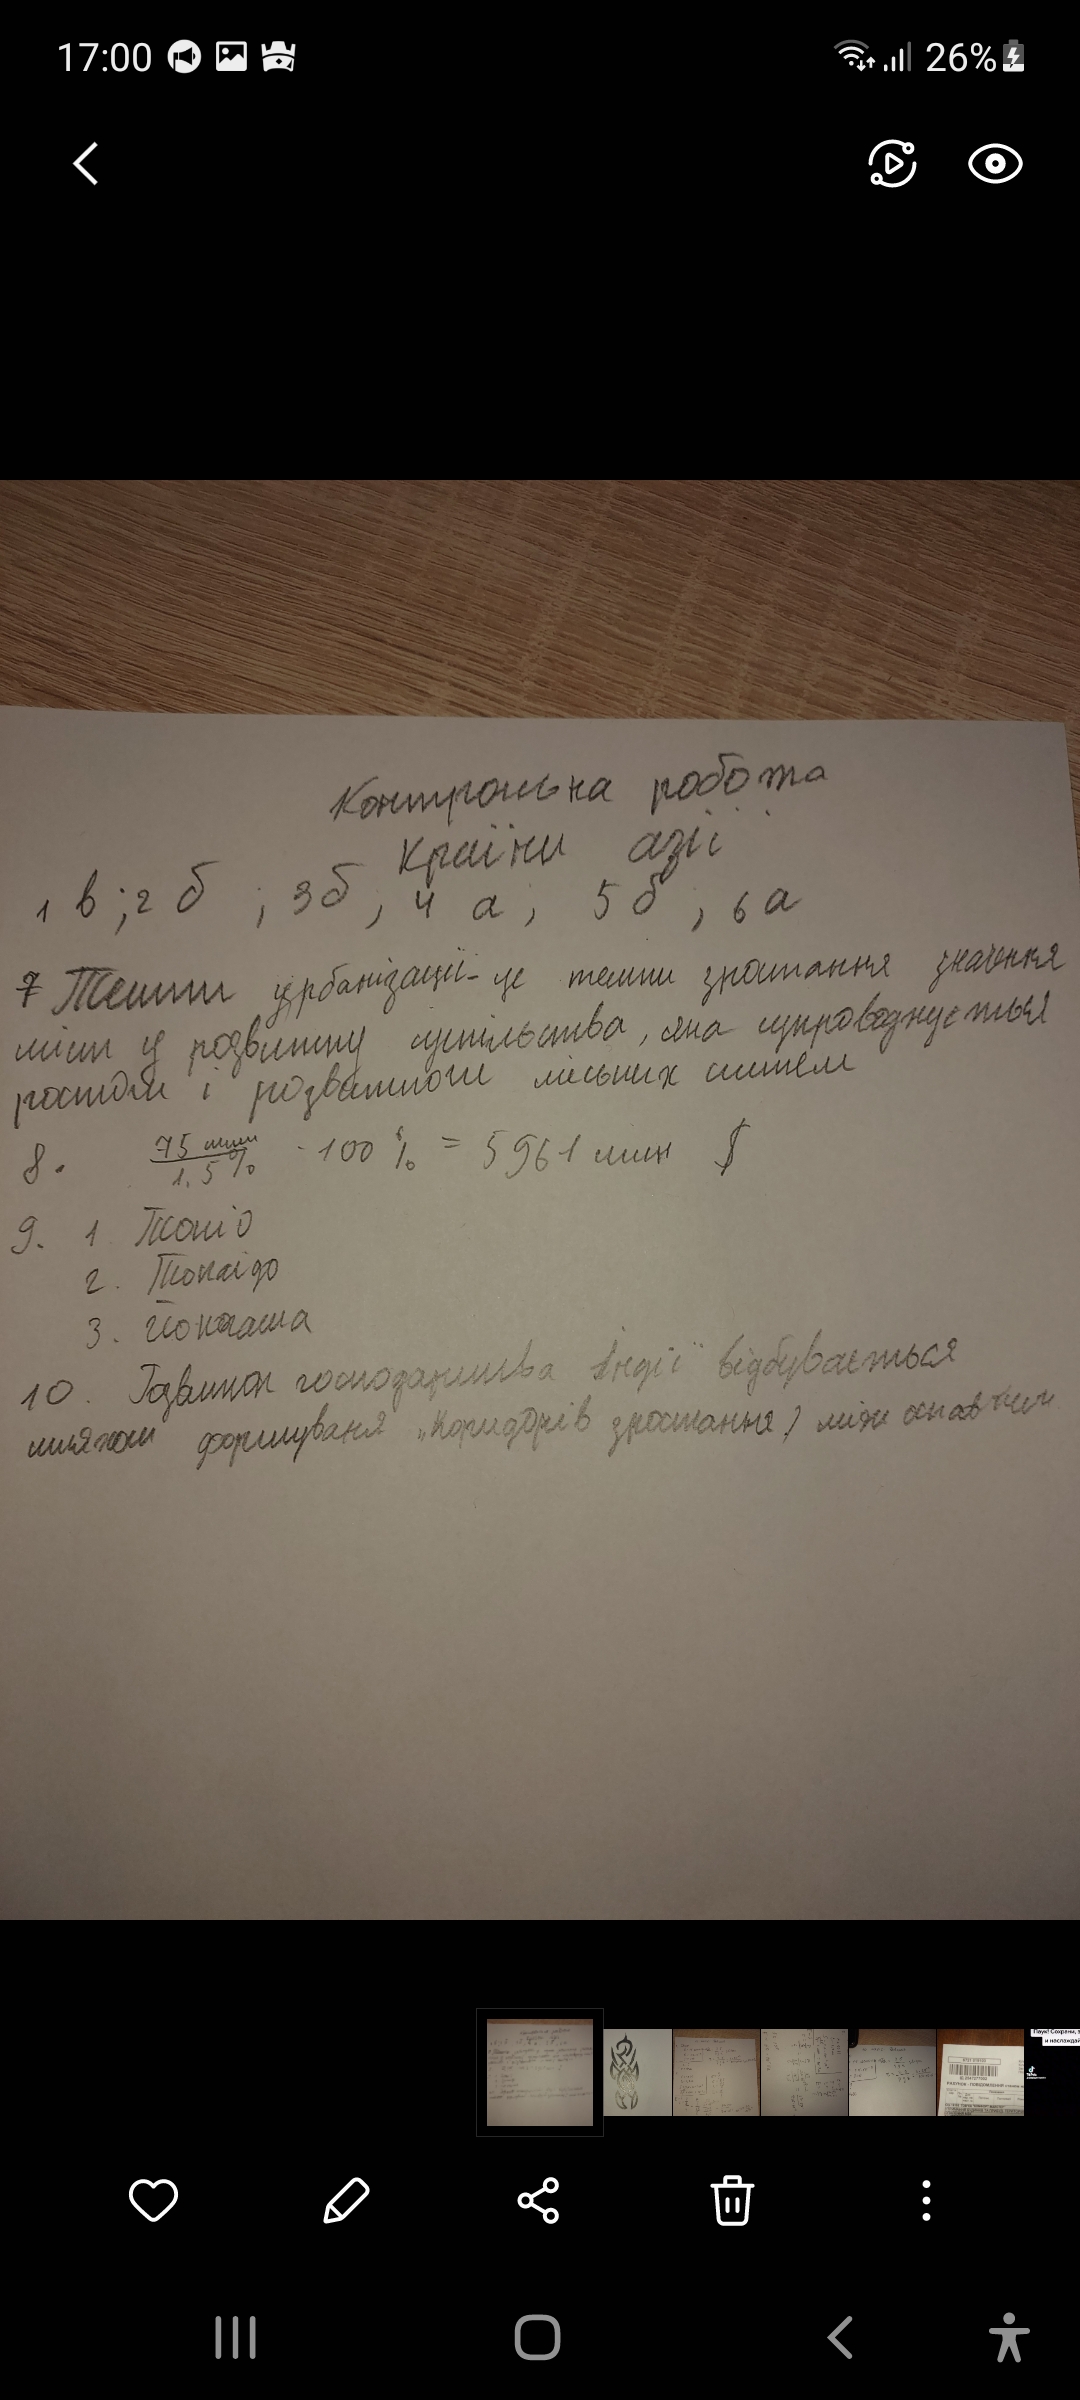 17:00
26%
Контрольна робота
країни азії
1 в ; 2 б ; 3б , 4 а ; 5 б , 6 а
7 Темпи урбанізації - це темпи зростання значення
міст у розвитку суспільства , яка супроводжується
ростом і розвитком міських систем
8. 75 млн / 1.5% · 100 % = 5961 млн $
9. 1 Токіо
2. Токаідо
3. Йокагама
10. господарства Індії відбувається
шляхом формування „Коридорів зростання , між